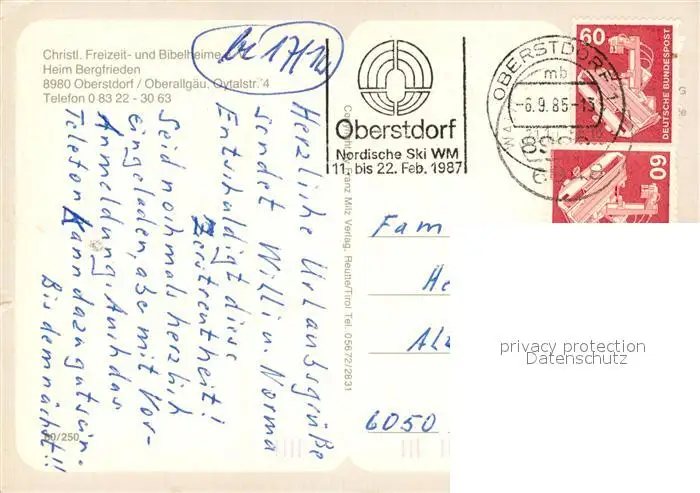 Christl. Freizeit- und Bibelheime
Heim Bergfrieden
8980 Oberstdorf / Oberallgäu, Oytalstr. 4
Telefon 0 83 22 - 30 63
Oberstdorf
Nordische Ski WM
11. bis 22. Feb. 1987
OBERSTDORF 1
mb
-6.9.85-13
60
DEUTSCHE BUNDESPOST
60
Herzliche Urlaubsgrüße
sendet Willi u. Norma
Entschuldigt diese
Zerstreutheit!
Seid nochmals herzlich
eingeladen, aber mit Vor-
Anmeldung. Auch das
Telefon kann dazu gut sein.
Bis demnächst!!
60/250
Franz Milz Verlag, Reutte/Tirol Tel. 05672/2831
Fam
He
6050
privacy protection
Datenschutz